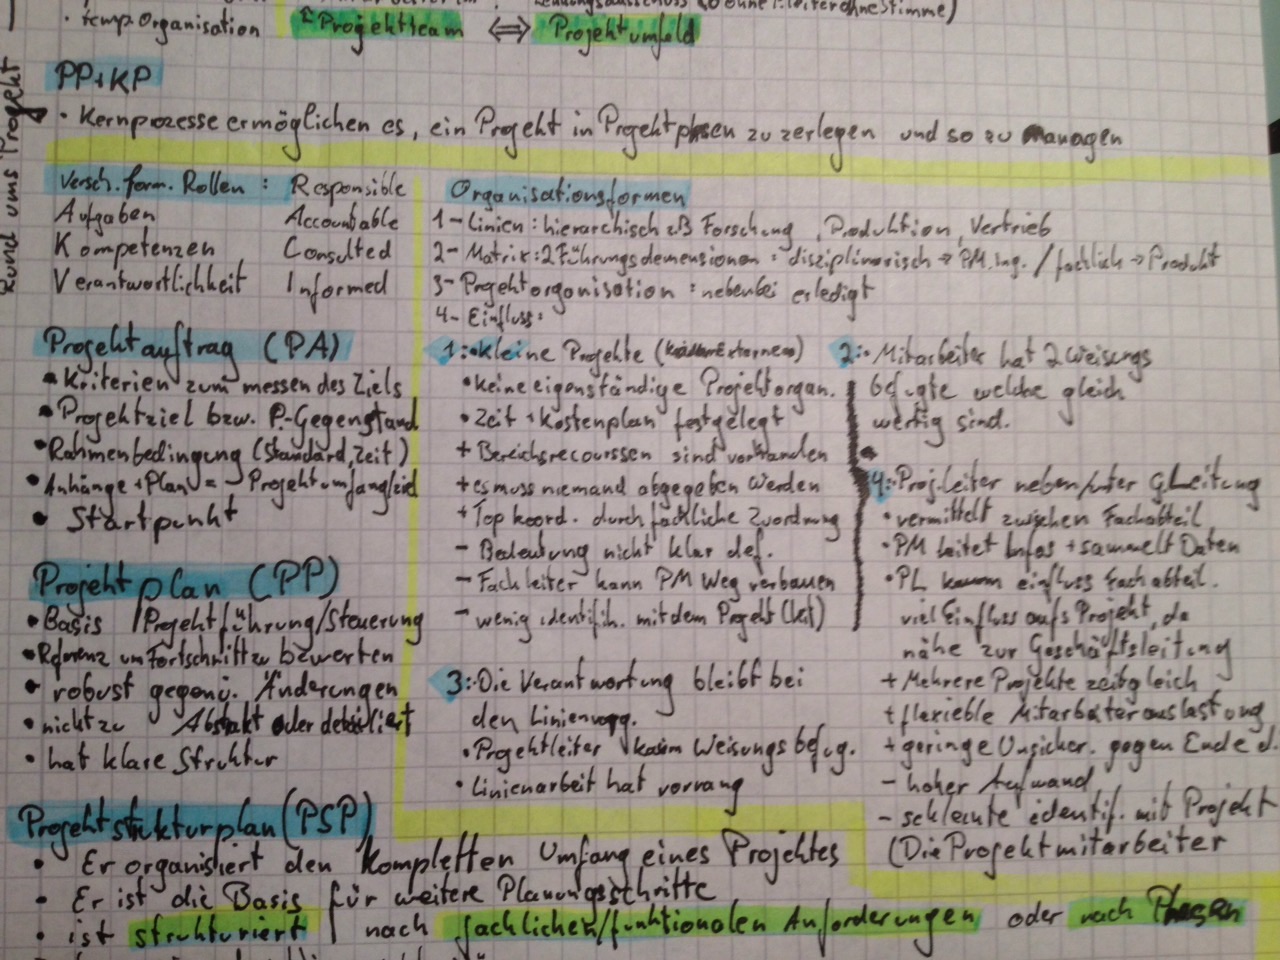 • temp. Organisation
Projektteam ⇔ Projektumfeld
rund ums Projekt
PP+KP
• Kernprozesse ermöglichen es, ein Projekt in Projektphsen zu zerlegen und so zu managen
Versch. form. Rollen : Responsible
Aufgaben Accountable
Kompetenzen Consulted
Verantwortlichkeit Informed
Projektauftrag (PA)
• Kriterien zum messen des Ziels
• Projektziel bzw. P.-Gegenstand
• Rahmenbedingung (Standard, Zeit)
• Anhänge + Plan = Projektumfang/ziel
• Startpunkt
Projektplan (PP)
• Basis Projektführung/Steuerung
• Referenz um Fortschritt zu bewerten
• robust gegenü. Änderungen
• nicht zu Abstakt oder detailiert
• hat klare Struktur
Organisationsformen
1- Linien : hierarchisch zB Forschung, Produktion, Vertrieb
2- Matrix : 2 Führungsdemensionen : disziplinarisch → PM. Ing. / fachlich → Produkt
3- Projektorganisation : nebenbei erledigt
4- Einfluss :
1: • kleine Projekte
• keine eigenständige Projektorgan.
• Zeit + Kostenplan festgelegt
+ Bereichsrecourssen sind vorhanden
+ es muss niemand abgegeben werden
+ Top koord. durch fachliche Zuordnung
- Bedeutung nicht klar def.
- Fachleiter kann PM Weg verbauen
- wenig identifik. mit dem Projekt
3: • Die Verantwortung bleibt bei
den Linienvorg.
• Projektleiter kaum Weisungsbefug.
• Linienarbeit hat vorrang
2: • Mitarbeiter hat 2 weisungs
befugte welche gleich
wertig sind.
4: • Proj.leiter neben/unter G.Leitung
• vermittelt zwischen Fachabteil.
• PM leitet Infos + sammelt Daten
• PL kaum einfluss Fachabteil.
viel Einfluss aufs Projekt, da
nähe zur Geschäftsleitung
+ Mehrere Projekte zeitgleich
+ flexieble Mitarbeiterauslastung
+ geringe Unsicher. gegen Ende d.
- hoher Aufwand
- schlechte identif. mit Projekt
(Die Projektmitarbeiter
Projektstrukturplan (PSP)
• Er organisiert den kompletten Umfang eines Projektes
• Er ist die Basis für weitere Planungsschritte
• ist strukturiert nach fachlichen/funktionalen Anforderungen oder nach Phasen